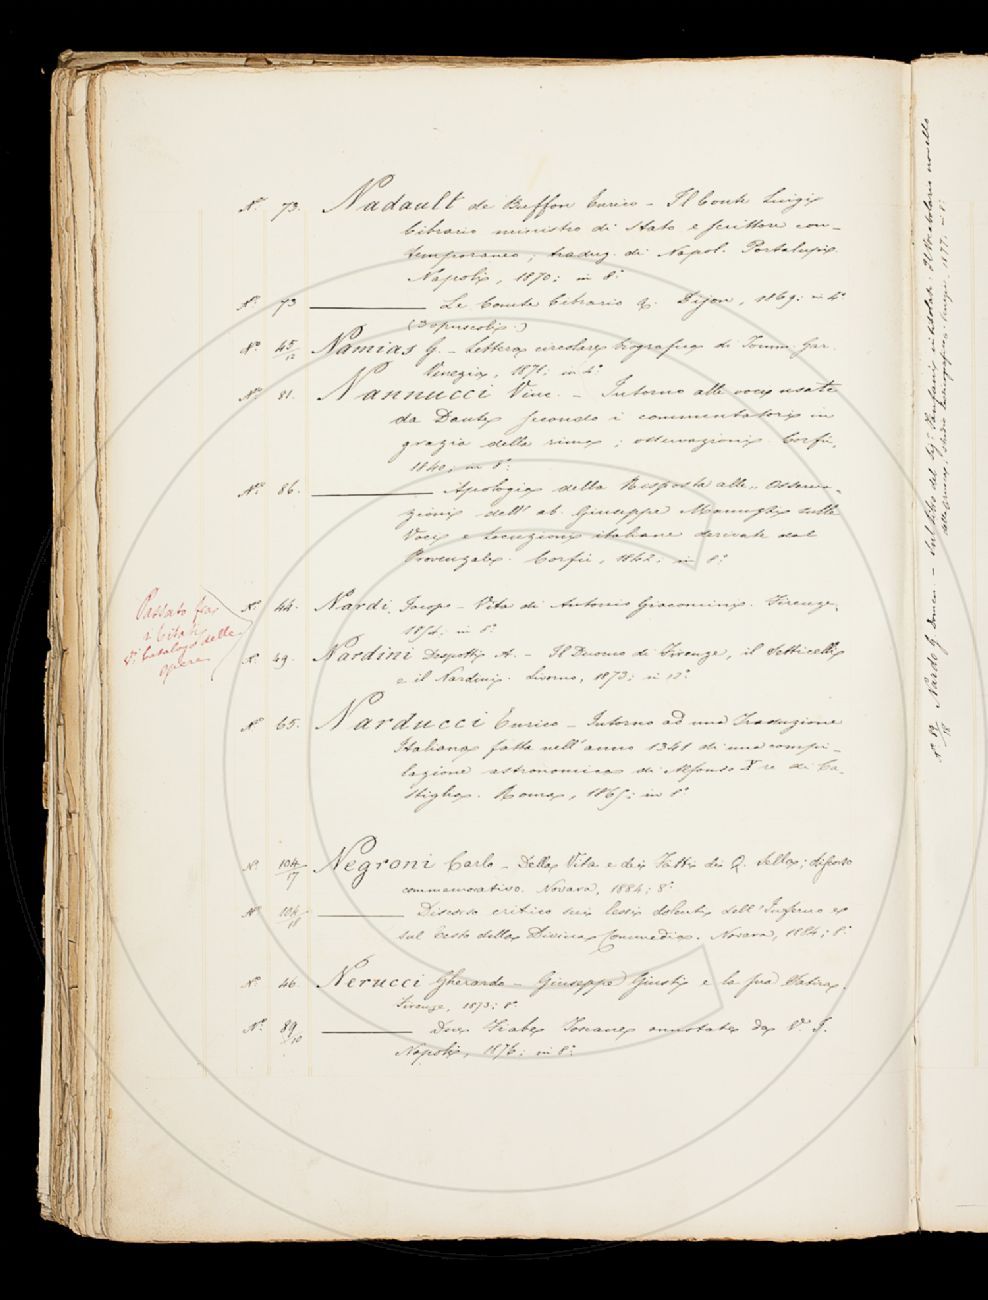 N.° 73. Nadault de Buffon Enrico - Il Conte Luigi
Cibrario ministro di Stato e scrittore con-
temporaneo; traduz. di Napol. Portalupi.
Napoli, 1870; in 8°
N.° 73 ——— Le Comte Cibrario &. Dijon, 1869; in 4°
(2 opuscoli.)
N.° 45/12 Namias G. - Lettera circolare biografica di Tomm. Gar.
Venezia, 1871; in 4°
N.° 81. Nannucci Vinc. - Intorno alle voci usate
da Dante secondo i commentatori in
grazia della rima; osservazioni. Corfù,
1840; in 8°
N.° 86. ——— Apologia della Risposta alle „ Osserva-
zioni dell' ab. Giuseppe Manuzzi sulle
Voci e Locuzioni italiane derivate dal
Provenzale. Corfù, 1842; in 8°
Passato fra
i Citati
V. Catalogo delle
opere
N.° 44. Nardi Jacopo - Vita di Antonio Giacomini. Firenze,
in 8°
N.° 49. Nardini Despotti A. - Il Duomo di Firenze, il Setticelli
e il Nardini. Livorno, 1873; in 12°
N.° 65. Narducci Enrico - Intorno ad una Traduzione
Italiana fatta nell' anno 1341 di una compi-
lazione astronomica di Alfonso X re di Ca-
stiglia. Roma, 1865; in 8°
N.° 104/17 Negroni Carlo - Della Vita e dei Fatti di Q. Sella; discorso
commemorativo. Novara, 1884; 8°
N.° 104/18 ——— Discorso critico sui lessi dolenti dell' Inferno e
sul testo della Divina Commedia. Novara, 1884; 8°
N.° 46. Nerucci Gherardo - Giuseppe Giusti e la sua Satira.
Firenze, 1873; 8°
N.° 89/10 ——— Due Fiabe Toscane annotate da V. I.
Napoli, 1876; in 8°
N.° 82/18 Nardo G. Domen. - Sul libro del Sig. Fanfani intitolato: Il Vocabolario novello
della Crusca, studio Venezia, 1877; in 8°